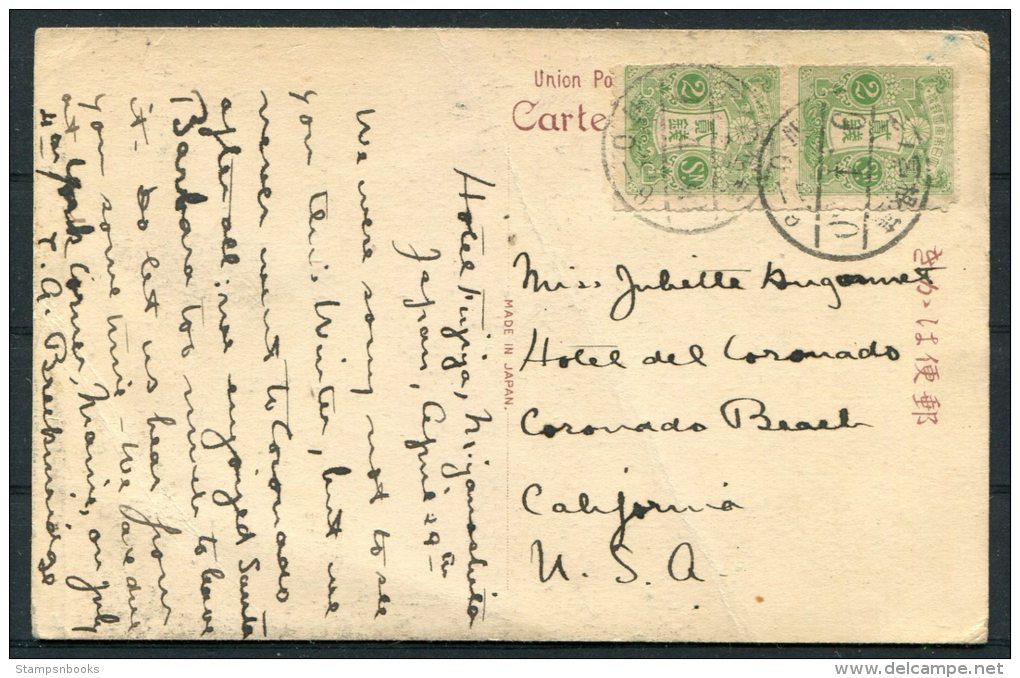 Union Po
Carte
2
貳錢
SN
2
貳錢
SN
きかは便郵
MADE IN JAPAN.
Hotel Fujiya, Miyanoshita
Japan, April 29th
We were sorry not to see
you this Winter, but we
never went to Coronado
after all: we enjoyed Santa
Barbara too much to leave
it - Do let us hear from
you some time - We are due
at York Corner, Maine, on July
4th
Y. A. Breckinridge
Miss Juliette
Hotel del Coronado
Coronado Beach
California
U. S. A.
Stampsnbooks
delcampe.net